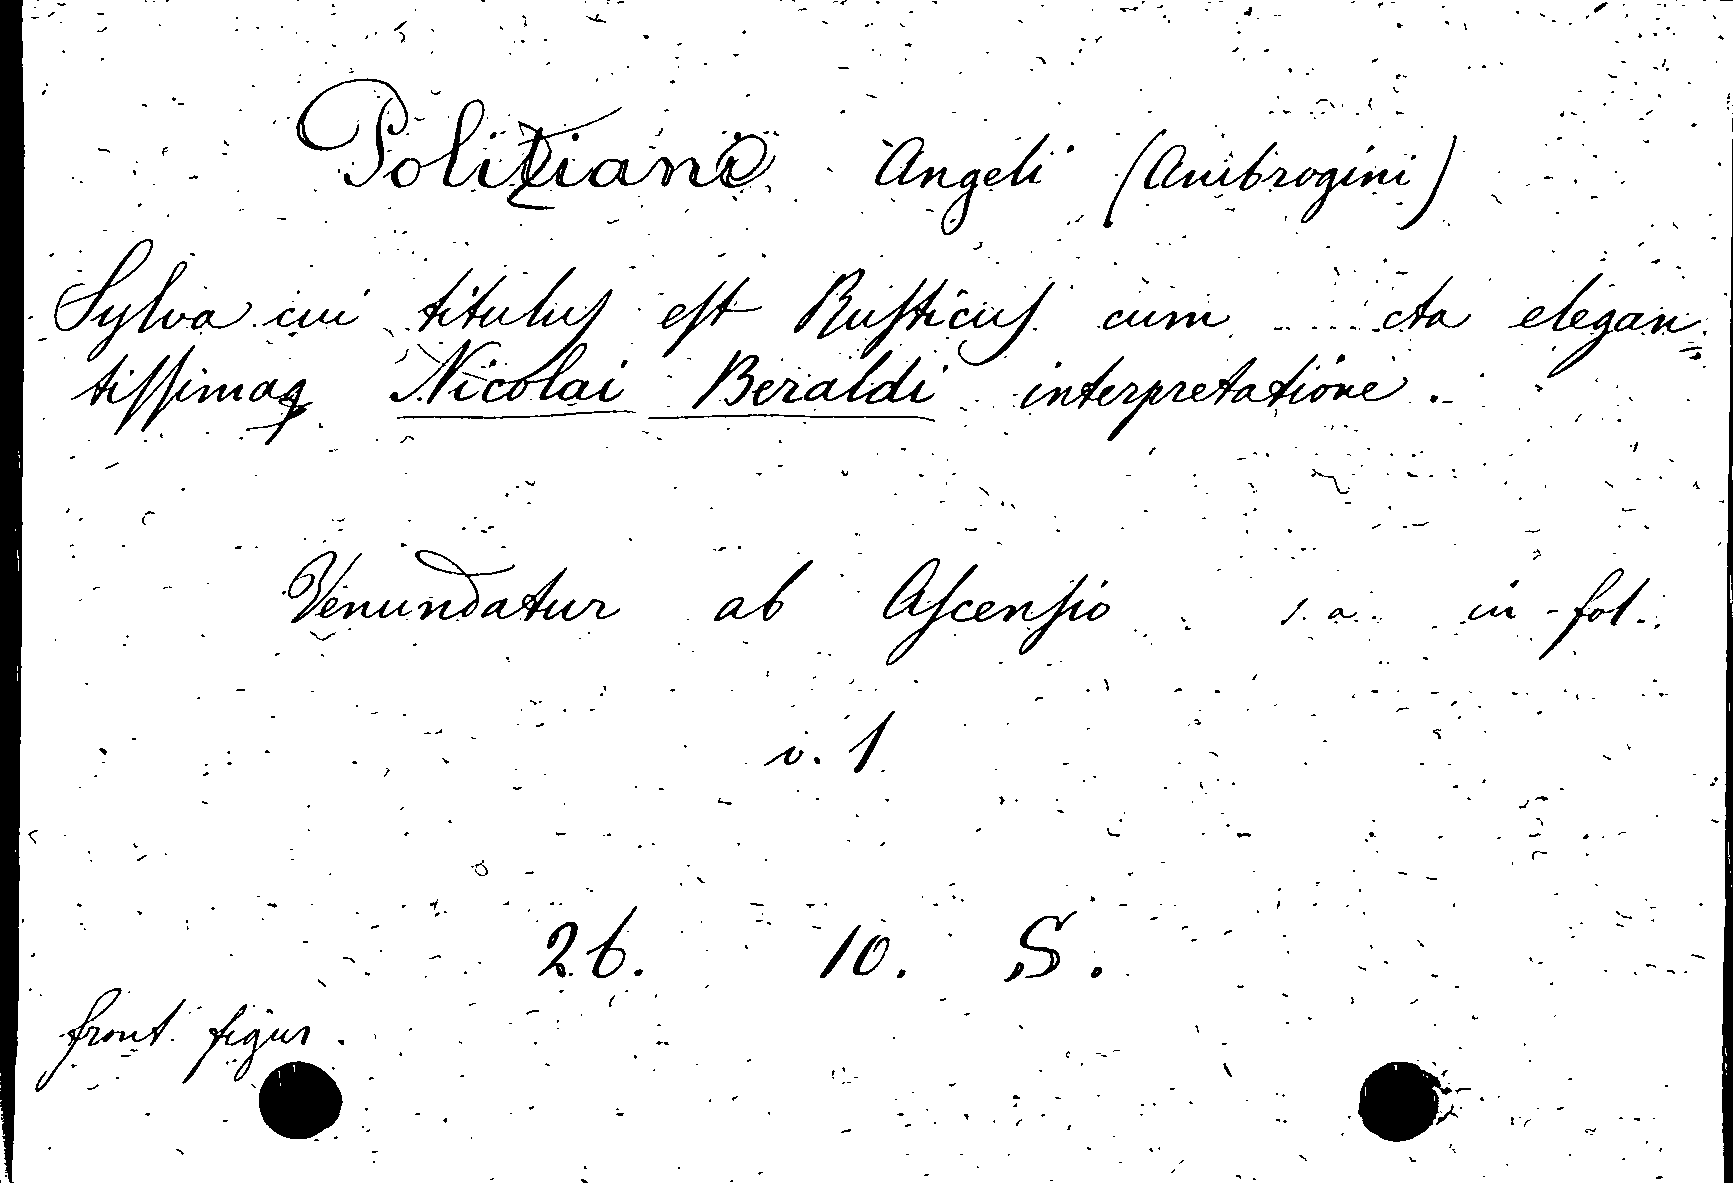 Poliziano Angeli (Ambrogini)
Sylva cui titulus est Rusticus cum cta elegan=
tissimaq Nicolai Beraldi interpretatione.
Venundatur ab Ascensio s. a. in-fol.
v. 1
26. 10. S.
front. figur.